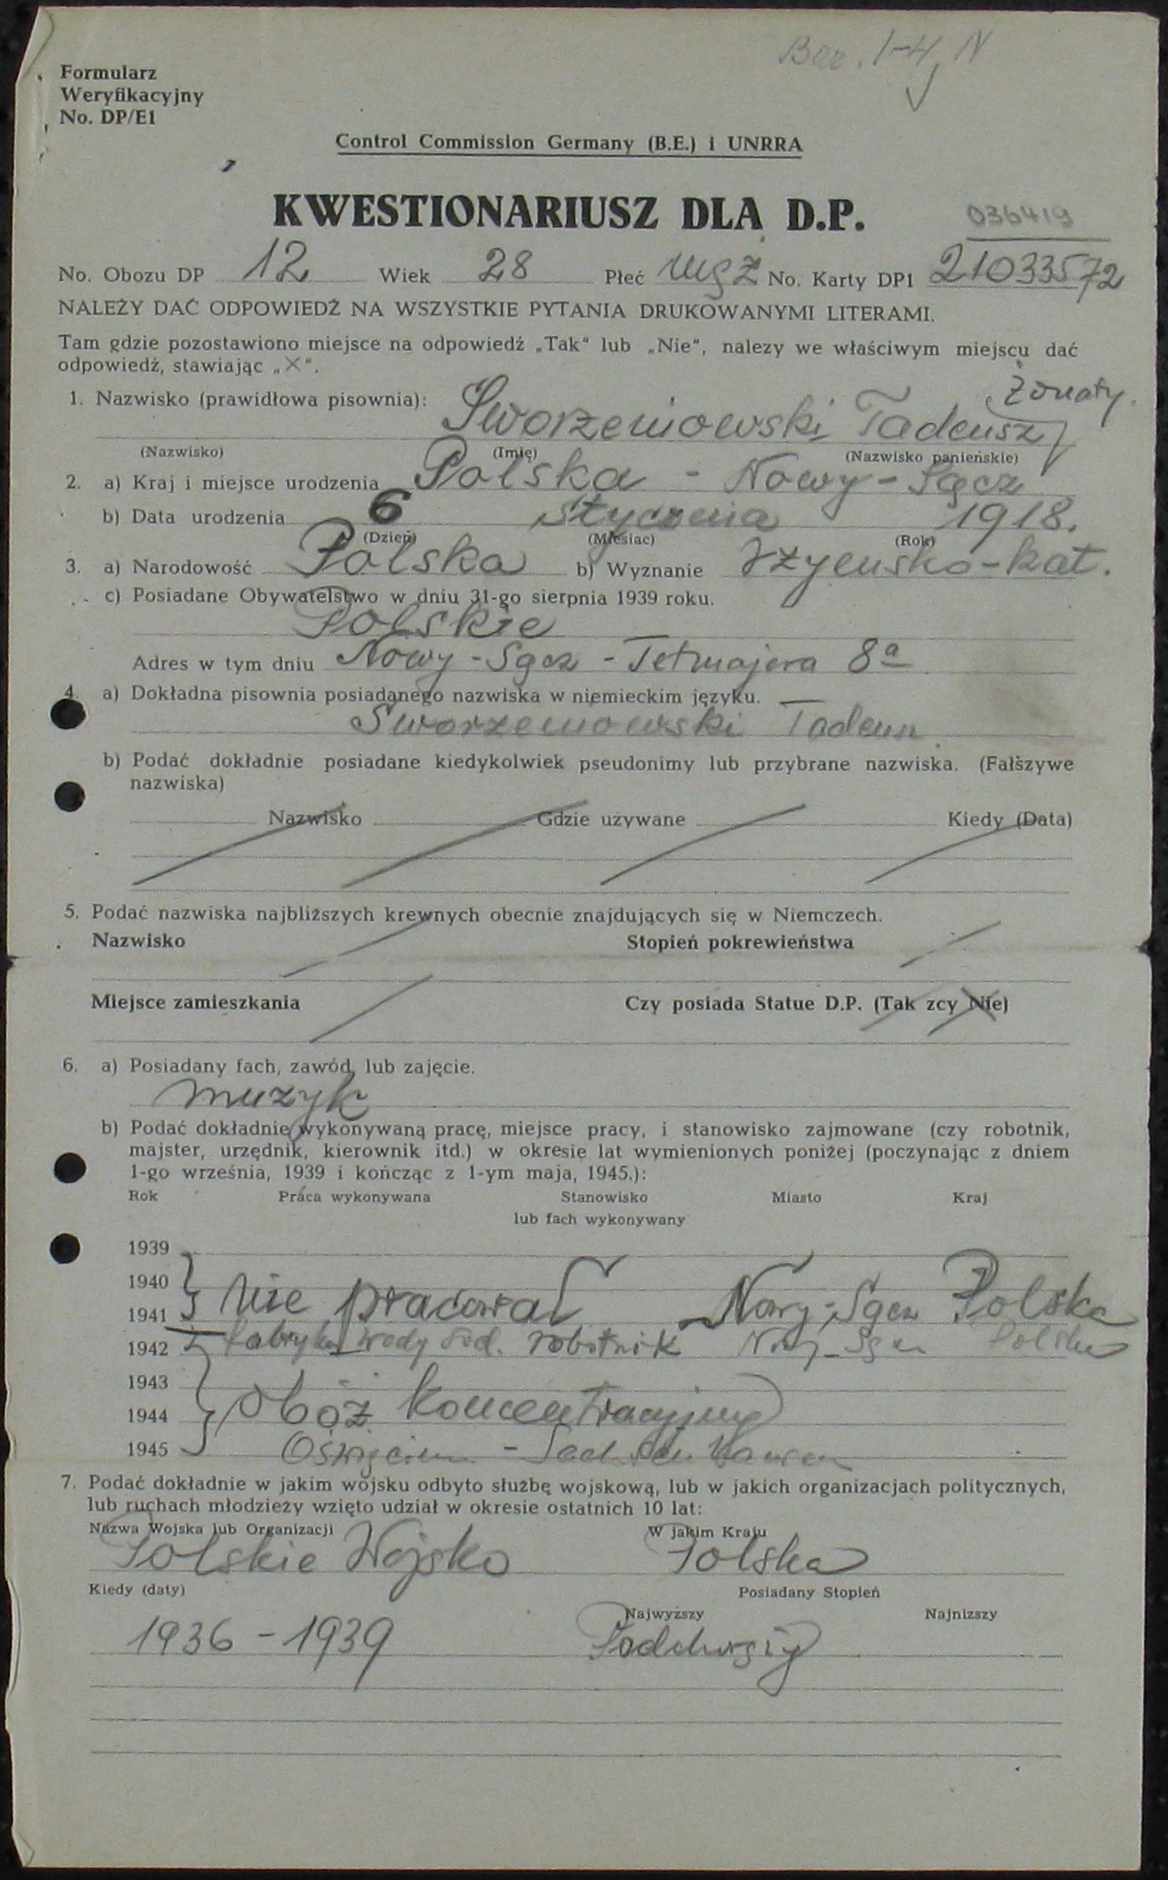 Ber. 1-4 N
Formularz
Weryfikacyjny
No. DP/E1
Control Commission Germany (B.E.) i UNRRA
KWESTIONARIUSZ DLA D.P.
036419
No. Obozu DP 12 Wiek 28 Płeć męż No. Karty DP1 21033572
NALEŻY DAĆ ODPOWIEDŹ NA WSZYSTKIE PYTANIA DRUKOWANYMI LITERAMI.
Tam gdzie pozostawiono miejsce na odpowiedź „Tak" lub „Nie", nalezy we właściwym miejscu dać
odpowiedź, stawiając „X".
żonaty.
1. Nazwisko (prawidłowa pisownia):
Sworzeniowski Tadeusz
(Nazwisko) (Imię) (Nazwisko panieńskie)
2. a) Kraj i miejsce urodzenia Polska - Nowy-Sącz
b) Data urodzenia 6 stycznia 1918.
(Dzień) (Miesiac) (Rok)
3. a) Narodowość Polska b) Wyznanie rzymsko-kat.
c) Posiadane Obywatelstwo w dniu 31-go sierpnia 1939 roku.
Polskie
Adres w tym dniu Nowy-Sącz - Tetmajera 8a
4. a) Dokładna pisownia posiadanego nazwiska w niemieckim języku.
Sworzeniowski Tadeusz
b) Podać dokładnie posiadane kiedykolwiek pseudonimy lub przybrane nazwiska. (Fałšzywe
nazwiska)
Nazwisko Gdzie używane Kiedy (Data)
5. Podać nazwiska najbliższych krewnych obecnie znajdujących się w Niemczech.
Nazwisko Stopień pokrewieństwa
Miejsce zamieszkania Czy posiada Statue D.P. (Tak zcy Nie)
6. a) Posiadany fach, zawód, lub zajęcie.
muzyk
b) Podać dokładnie wykonywaną pracę, miejsce pracy, i stanowisko zajmowane (czy robotnik,
majster, urzędnik, kierownik itd.) w okresie lat wymienionych poniżej (poczynając z dniem
1-go września, 1939 i kończąc z 1-ym maja, 1945.):
Rok Práca wykonywana Stanowisko Miasto Kraj
lub fach wykonywany
1939
1940
1941 nie pracował Nowy-Sącz Polska
1942 fabryka wody sod. robotnik Nowy-Sącz Polska
1943
1944 obóz koncentracyjny
1945 Oświęcim - Sachsenhausen
7. Podać dokładnie w jakim wojsku odbyto służbę wojskową, lub w jakich organizacjach politycznych,
lub ruchach młodzieży wzięto udział w okresie ostatnich 10 lat:
Nazwa Wojska lub Organizacji W jakim Kraju
Polskie Wojsko Polska
Kiedy (daty) Posiadany Stopień
Najwyższy Najniższy
1936 - 1939 Podchorąży